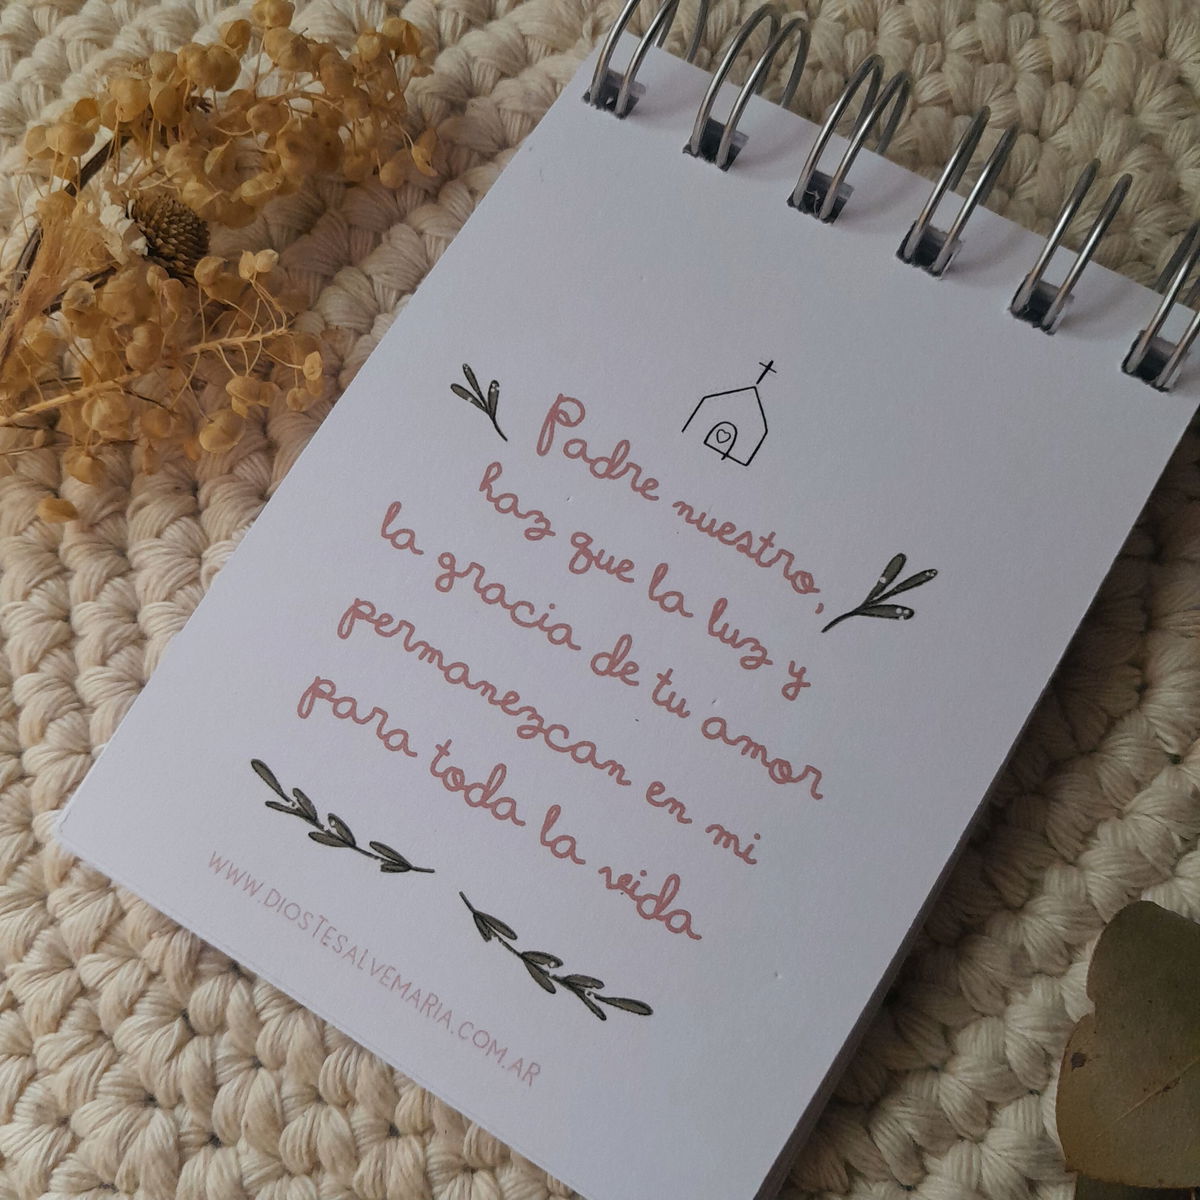 Padre nuestro,
haz que la luz y
la gracia de tu amor
permanezcan en mi
para toda la vida
WWW.DIOSTESALVEMARIA.COM.AR